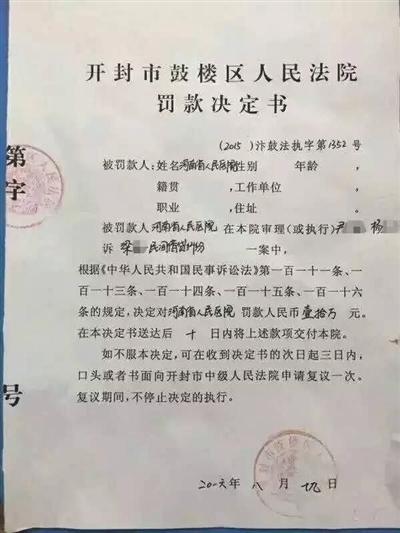 开封市鼓楼区人民法院
罚款决定书
(2015) 汴鼓法执字第1352号
被罚款人:姓名河南省人民医院性别 年龄,
籍贯 ,工作单位
职业 ,住址
被罚款人河南省人民医院在本院审理(或执行)尹 杨
诉 梁 民间借贷纠纷 一案中,
根据《中华人民共和国民事诉讼法》第一百一十一条、一
百一十三条、一百一十四条、一百一十五条、一百一十六
条的规定,决定对河南省人民医院罚款人民币壹拾万元。
在本决定书送达后十日内将上述款项交付本院。
如不服本决定,可在收到决定书的次日起三日内,
口头或者书面向开封市中级人民法院申请复议一次。
复议期间,不停止决定的执行。
二〇一六年八月十九日
第
字
号